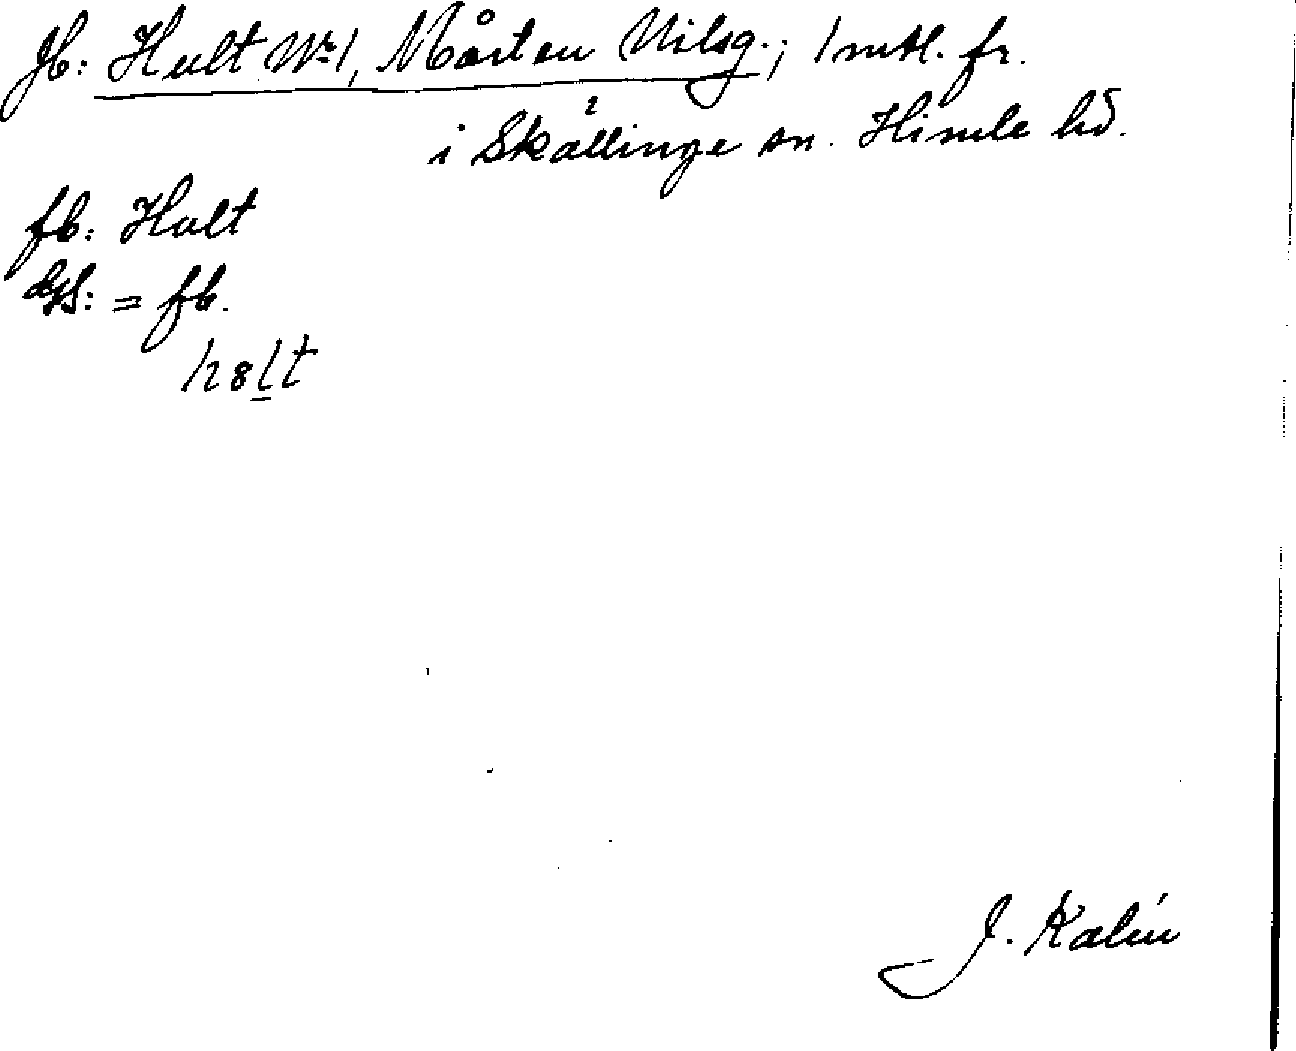 Jb: Hult Nr 1, Mårten Nilsg.; 1 mtl. fr.
i Skällinge sn. Himle hd.
fb: Hult
dgs: = fb.
h8lt
J. Kalén